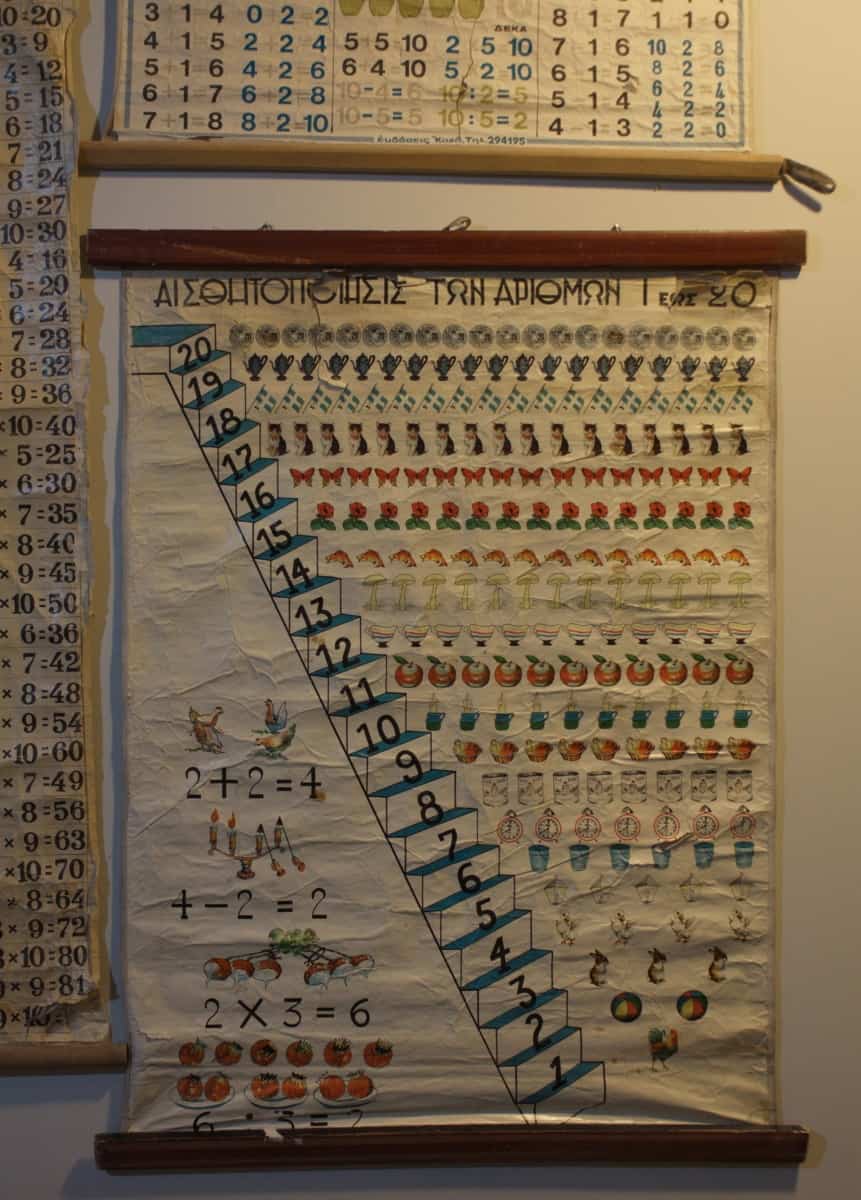 10=20
3=9
4=12
5=15
6=18
7=21
8=24
9=27
10=30
4=16
5=20
6=24
7=28
8=32
9=36
×10=40
× 5=25
× 6=30
× 7=35
× 8=40
× 9=45
×10=50
× 6=36
× 7=42
× 8=48
× 9=54
×10=60
× 7=49
× 8=56
× 9=63
×10=70
× 8=64
× 9=72
×10=80
× 9=81
3 1 4 0 2 2
4 1 5 2 2 4
5 1 6 4 2 6
6 1 7 6 2 8
7 1 8 8 2 10
ΔΕΚΑ
5 5 10 2 5 10
6 4 10 5 2 10
10-4=6 10:2=5
10-5=5 10:5=2
8 1 7 1 1 0
7 1 6 10 2 8
6 1 5 8 2 6
5 1 4 6 2 4
4 2 2
4 1 3 2 2 0
Τηλ. 294195
ΑΙΣΘΗΤΟΠΟΙΗΣΙΣ ΤΩΝ ΑΡΙΘΜΩΝ 1 ΕΩΣ 20
20
19
18
17
16
15
14
13
12
11
10
9
8
7
6
5
4
3
2
1
2+2=4
4-2=2
2×3=6
6:3=2